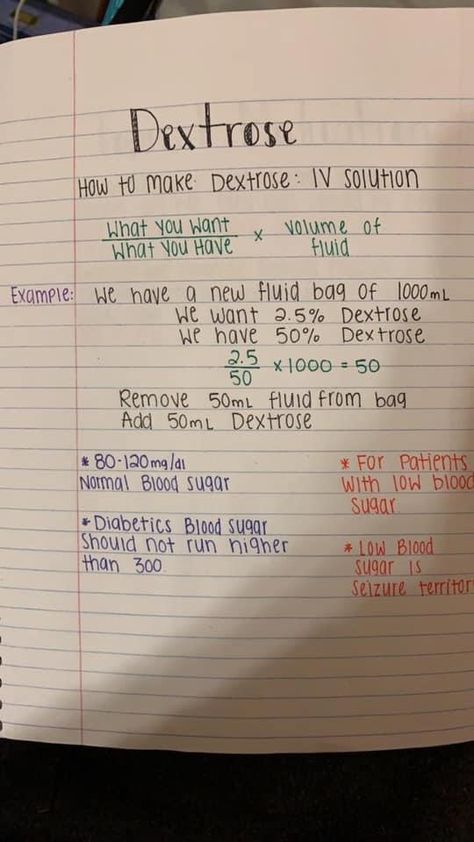 Dextrose
How to make: Dextrose: IV solution
What you want
What you Have
x
volume of
fluid
Example: We have a new fluid bag of 1000mL
We want 2.5% Dextrose
We have 50% Dextrose
2.5
50
x1000 = 50
Remove 50mL fluid from bag
Add 50mL Dextrose
* 80-120mg/dl
Normal Blood sugar
* Diabetics Blood sugar
should not run higher
than 300
* For Patients
with low blood
sugar
* Low Blood
sugar is
seizure territor